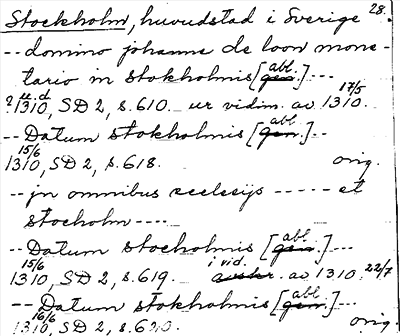 Stockholm, huvudstad i Sverige 28.
-- domino johanne de loon mone-
tario in stokholmis [abl.] ---
? u.d 1310, SD 2, s. 610. ur vidim. av 1310. 17/5
-- Datum stokholmis [abl.] --
15/6 1310, SD 2, s. 618. orig.
-- jn omnibus ecclesijs ----- et
stocholm ----
-- Datum stocholmis [abl.] ---
15/6 1310, SD 2, s. 619. i vid. av 1310. 22/7
-- Datum stokholmis [abl.] ---
16/6 1310, SD 2, s. 620. orig.